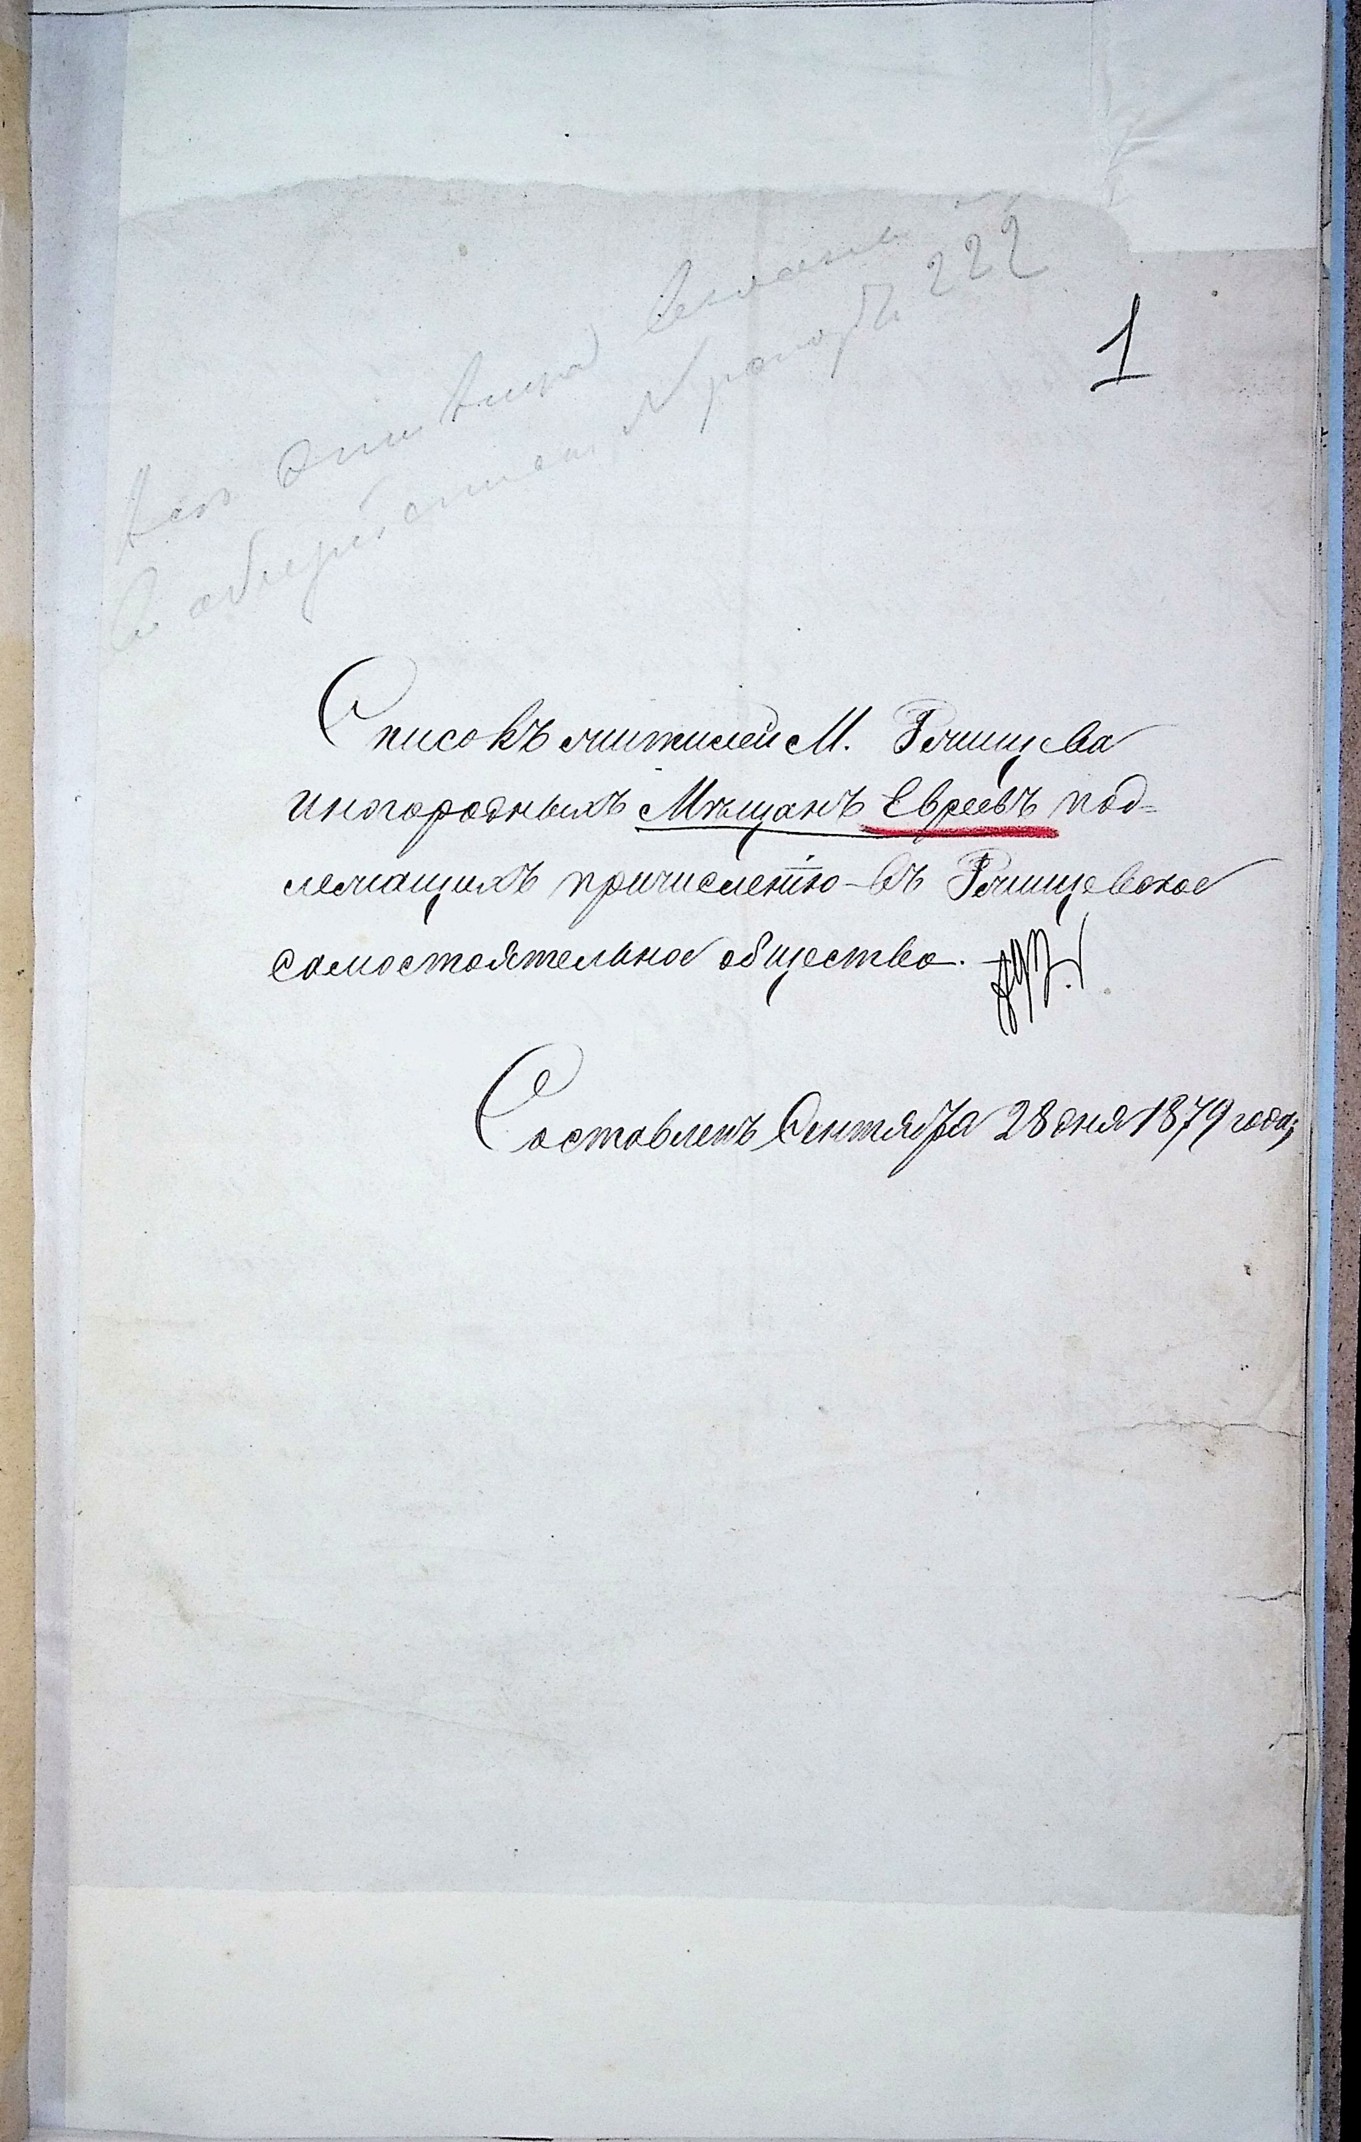 222
1
Списокъ жителей М. Ржищева
иногородныхъ Мѣщанъ Евреевъ под=
лежащихъ причисленію въ Ржищевское
самостоятельное общество.
Составленъ Сентября 28 дня 1879 года;